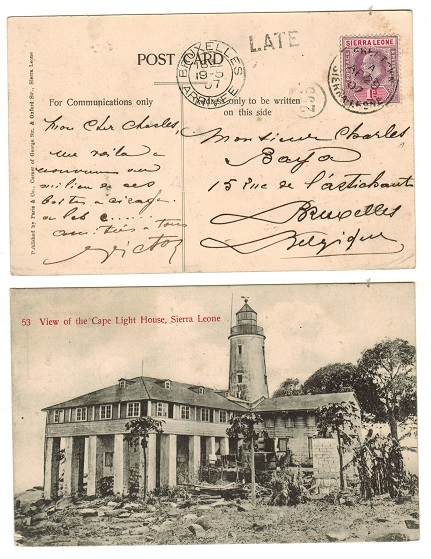 POST CARD
LATE
BRUXELLES
19-5
07
ARRIVÉE
SIERRA LEONE
SIERRA LEONE
For Communications only
Address only to be written
on this side
Mon Cher Charles,
me voilà à
nouveau au
milieu de ces
amitiés à tous
Victor
Monsieur Charles
15 Rue de l'artichaut
Bruxelles
Belgique
Published by Paris & Co., Corner of George Str. & Oxford Str., Sierra Leone
53 View of the Cape Light House, Sierra Leone